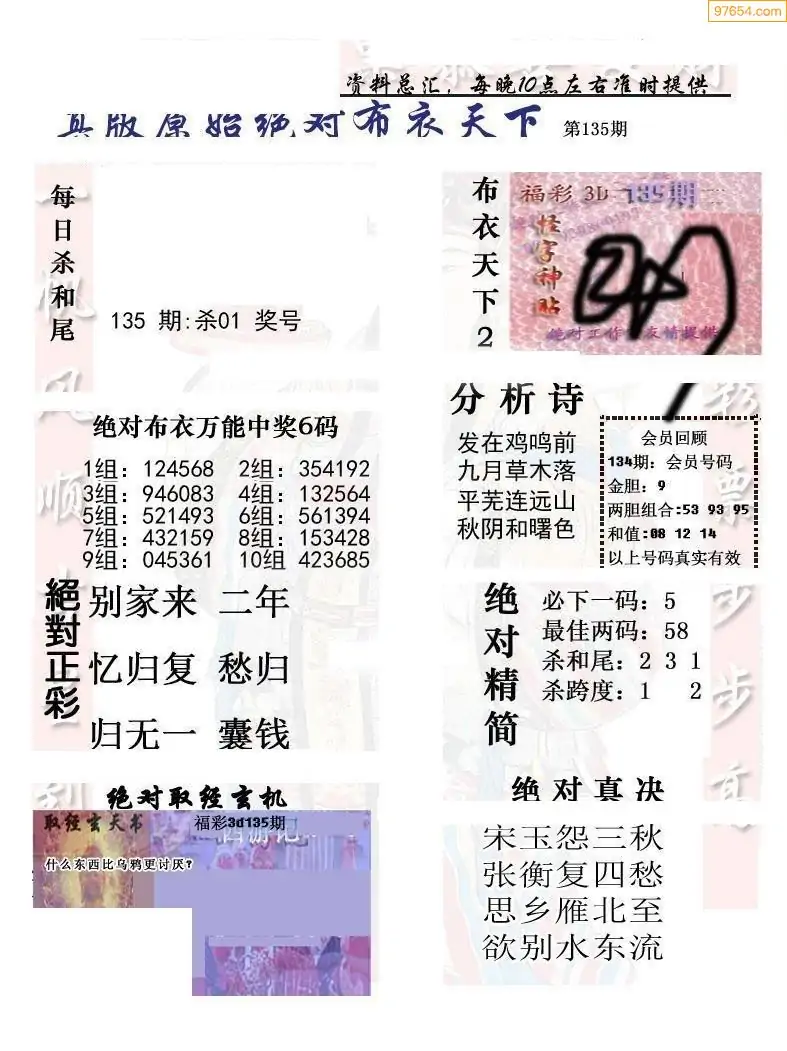 97654.com
资料总汇，每晚10点左右准时提供
真版原始绝对布衣天下 第135期
每日杀和尾
135 期:杀01 奖号
布衣天下2
福彩 3D 135期
怪字神贴
绝对布衣万能中奖6码
1组：124568 2组：354192
3组：946083 4组：132564
5组：521493 6组：561394
7组：432159 8组：153428
9组：045361 10组 423685
分析诗
发在鸡鸣前
九月草木落
平芜连远山
秋阴和曙色
会员回顾
134期：会员号码
金胆：9
两胆组合:53 93 95
和值:08 12 14
以上号码真实有效
絕對正彩
别家来 二年
忆归复 愁归
归无一 囊钱
绝对精简
必下一码：5
最佳两码：58
杀和尾：2 3 1
杀跨度：1 2
绝对取经玄机
取经玄天书
福彩3d135期
西游记
什么东西比乌鸦更讨厌?
绝对真决
宋玉怨三秋
张衡复四愁
思乡雁北至
欲别水东流